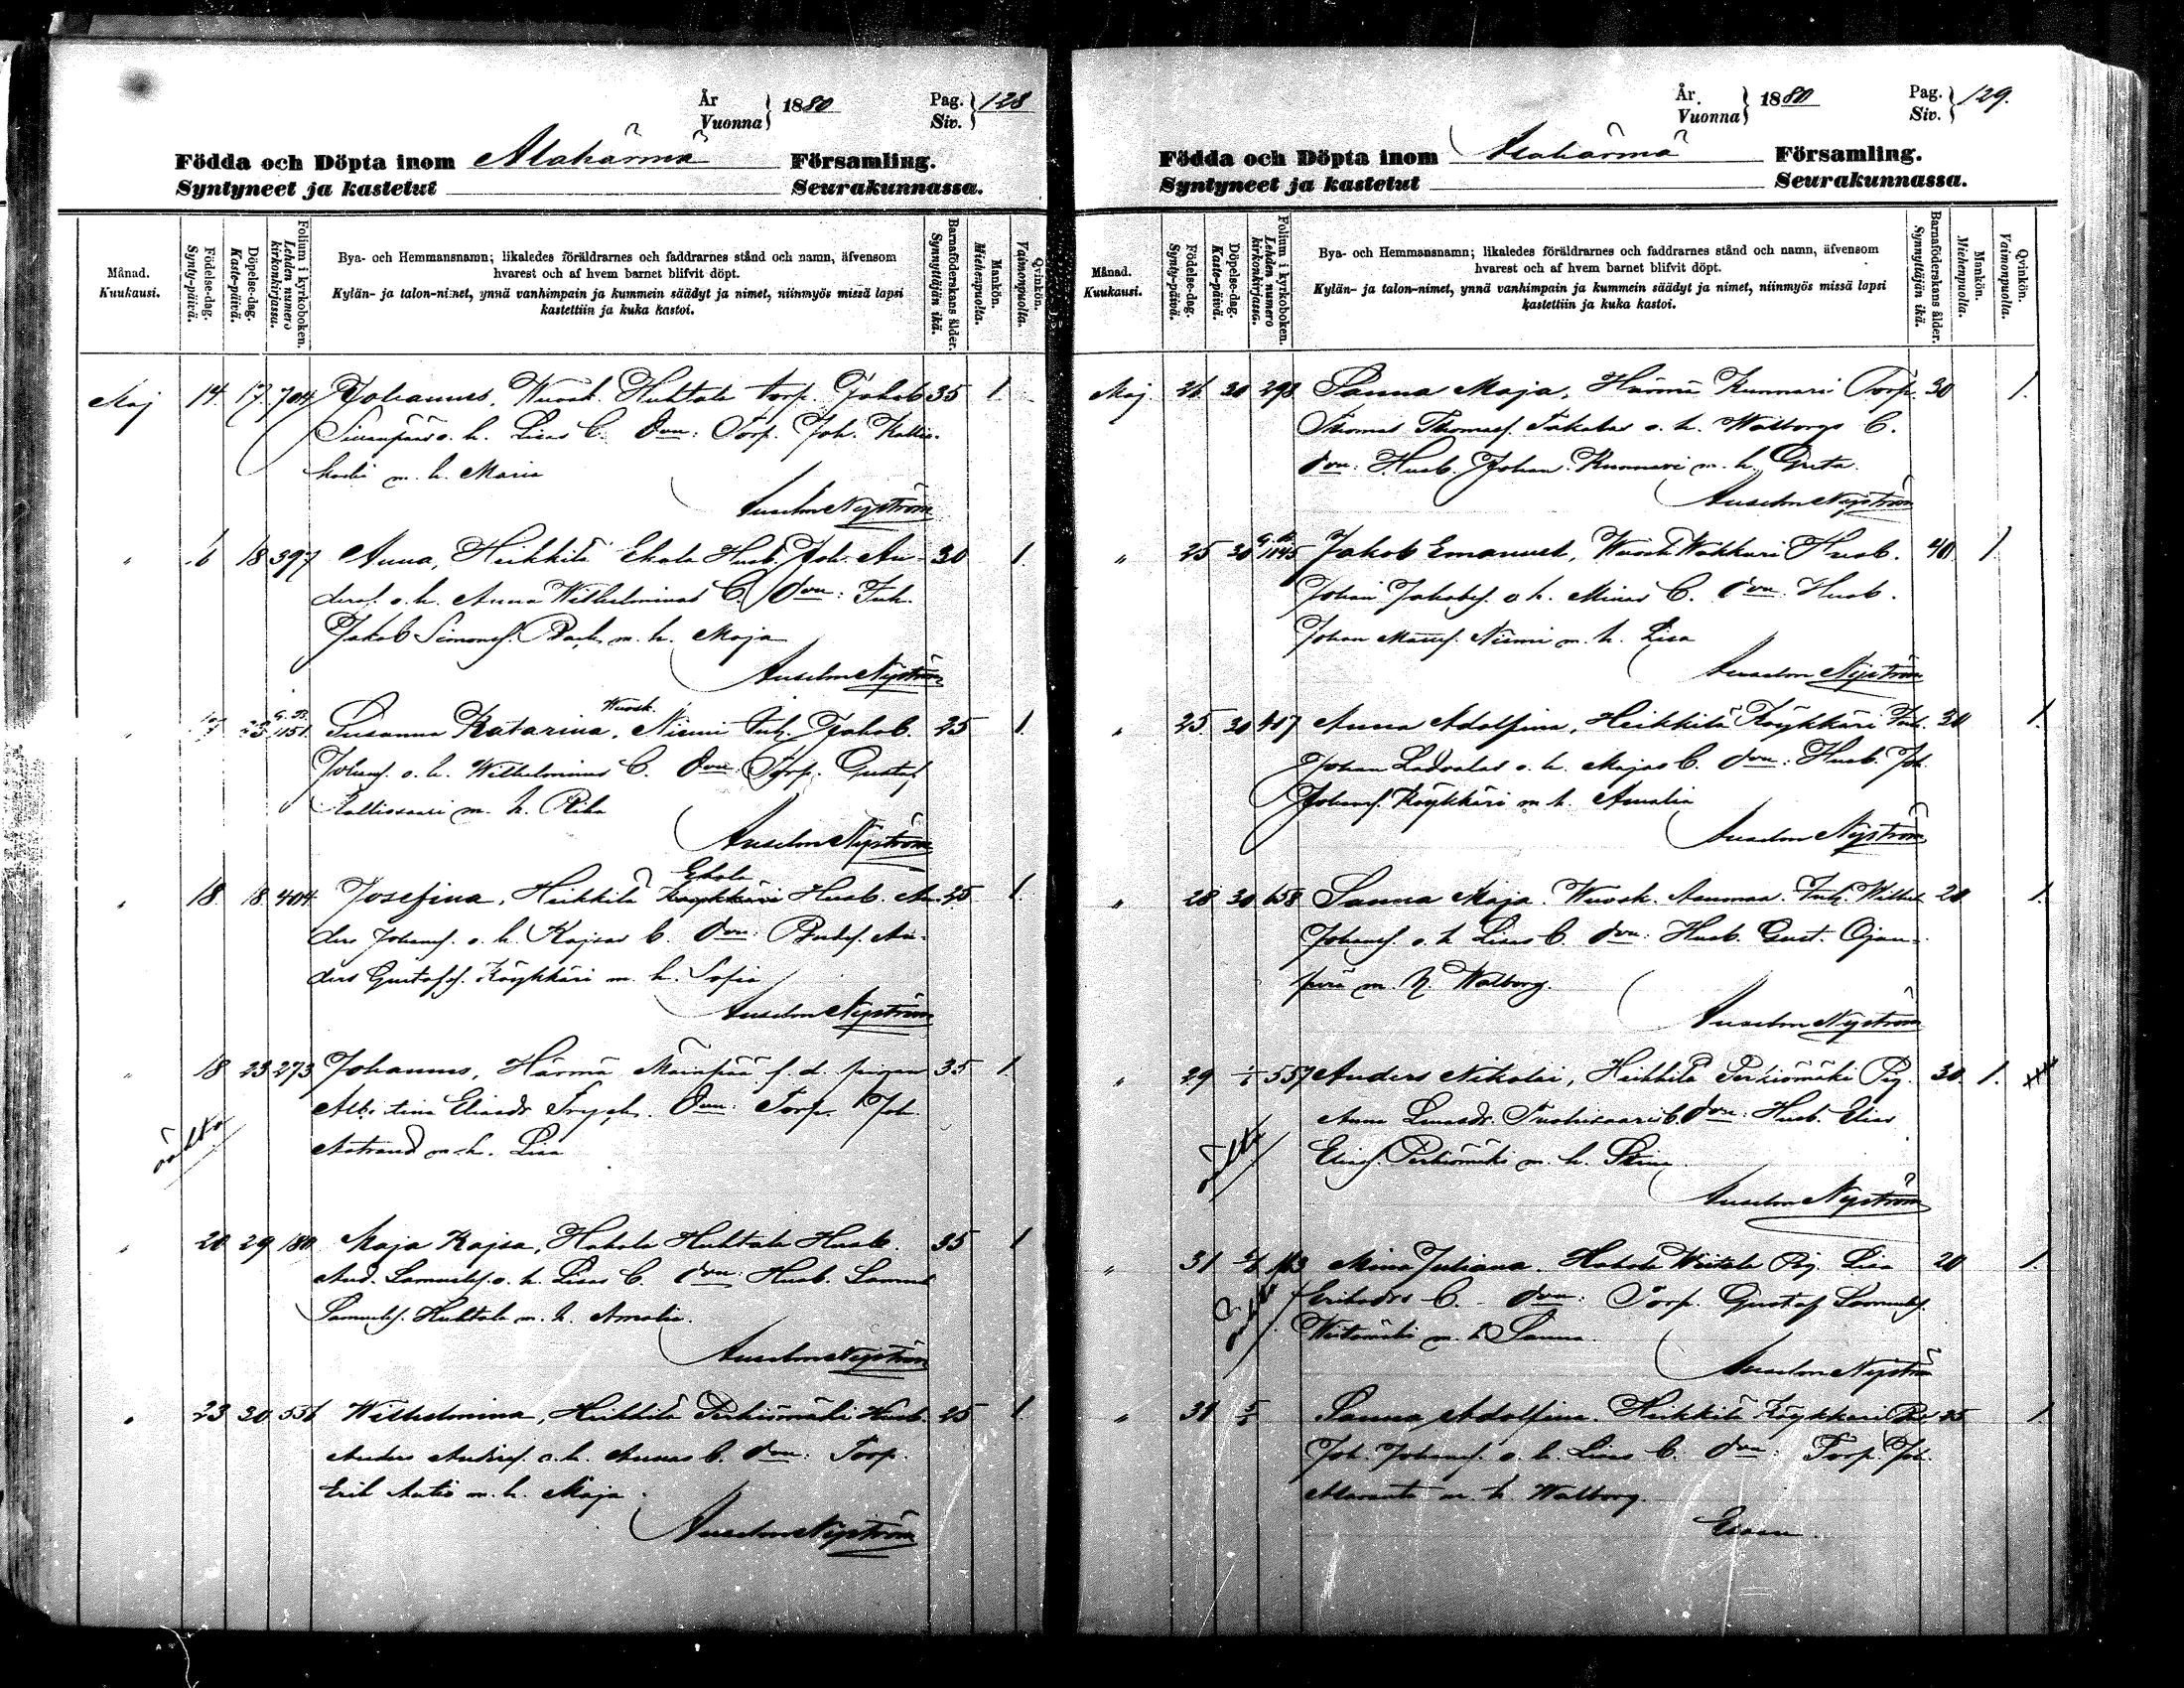 År
Vuonna } 1880
Pag.
Siv. } 128
Födda och Döpta inom Alahärmä Församling.
Syntyneet ja kastetut Seurakunnassa.
Månad.
Kuukausi.
Födelse-dag.
Synty-päivä.
Döpelse-dag.
Kaste-päivä.
Folium i kyrkoboken.
Lehden numero
kirkonkirjassa.
Bya- och Hemmansnamn; likaledes föräldrarnes och faddrarnes stånd och namn, äfvensom
hvarest och af hvem barnet blifvit döpt.
Kylän- ja talon-nimet, ynnä vanhimpain ja kummein säädyt ja nimet, niinmyös missä lapsi
kastettiin ja kuka kastoi.
Barnaföderskans ålder.
Synnyttäjän ikä.
Mankön.
Miehenpuolta.
Qvinkön.
Vaimonpuolta.
Maj 14. 17. 704 Johannes, Wuosk. Huhtala torp. Jakob 35 1.
o. h. Lisas C. dvn: Torp. Joh. Kallio-
m. h. Maria
Anselm Nyström
" 16 18 397 Anna, Heikkilä Ekola Husb. Joh. An- 30 1.
dersf. o. h. Anna Wilhelminas C. dvn: Inh.
Jakob Simonsf. m. h. Maja
Anselm Nyström
Wuosk.
" 17 23 G. B. 1151. Susanna Katarina, Niemi Inh. Jakob 25 1.
Johansf. o. h. Wilhelminas C. dvn: Torp. Gustaf
Kalliosaari m. h. Rika
Anselm Nyström
Ekola
" 18. 18 404 Josefina, Heikkilä Köykkäri Husb. An- 25 1.
ders Johansf. o. h. Kajsas C. dvn: Bondes. An-
ders Gustafsf. Köykkäri m. h. Sofia
Anselm Nyström
" 18 23 273 Johannes, Härmä Mäenpää f. d. pigan 35 1.
Albertina Eliasdr dvn: Torp. Joh.
Åstrand m. h. Lisa
oäkta
" 20 29 180 Maja Kajsa, Hakola Huhtala Husb. 35 1
And. Samuelsf. o. h. Lisas C. dvn: Husb. Samuel
Samuelsf. Huhtala m. h. Amalia.
Anselm Nyström
" 23 30 556 Wilhelmina, Heikkilä Perkiömäki Husb. 25 1.
Anders Andersf. o. h. Annas C. dvn: Torp.
Erik Antio m. h. Maja.
Anselm Nyström
År
Vuonna } 1880
Pag.
Siv. } 129.
Födda och Döpta inom Alahärmä Församling.
Syntyneet ja kastetut Seurakunnassa.
Månad.
Kuukausi.
Födelse-dag.
Synty-päivä.
Döpelse-dag.
Kaste-päivä.
Folium i kyrkoboken.
Lehden numero
kirkonkirjassa.
Bya- och Hemmansnamn; likaledes föräldrarnes och faddrarnes stånd och namn, äfvensom
hvarest och af hvem barnet blifvit döpt.
Kylän- ja talon-nimet, ynnä vanhimpain ja kummein säädyt ja nimet, niinmyös missä lapsi
kastettiin ja kuka kastoi.
Barnaföderskans ålder.
Synnyttäjän ikä.
Mankön.
Miehenpuolta.
Qvinkön.
Vaimonpuolta.
Maj. 26 30 298 Sanna Maja, Härmä Kunnari Torp. 30 1.
Thomas Thomasf. o. h. Walborgs C.
dvn: Husb. Johan Kunnari m. h. Greta.
Anselm Nyström
" 25 30 G. B. 1145 Jakob Emanuel, Wuosk. Wakkuri Husb. 40 1.
Johan Jakobsf. o. h. Minas C. dvn: Husb.
Johan Mattsf. Niemi m. h. Lisa
Anselm Nyström
" 25 30 417 Anna Adolfina, Heikkilä Köykkäri Inh. 30 1.
Johan Ladvalas o. h. Majas C. dvn: Husb. Joh.
Johansf. Köykkäri m. h. Amalia
Anselm Nyström
" 28 30 658 Sanna Maja. Wuosk. Aunmaa. Inh. Wilhel 20 1.
Johansf. o. h. Lisas C. dvn: Husb. Gust. Ojan-
perä m. h. Walborg.
Anselm Nyström
" 29 1/6 557 Anders Nikolai, Heikkilä Perkiömäki Pig. 30. 1.
Anna C. dvn: Husb. Elias
Eliasf. Perkiömäki m. h. Stina
Anselm Nyström
oäkta
" 31 163 Mina Juliana. Hakola Weitala Pig. Lisa 20 1.
Eriksdrs C. dvn: Torp. Gustaf Samuelsf.
m. h. Sanna.
Anselm Nyström
" 31 Sanna Adolfina. Heikkilä Köykkäri 25 1
Joh. Johansf. o. h. Lisas C. dvn: Torp. Joh.
m. h. Walborg.